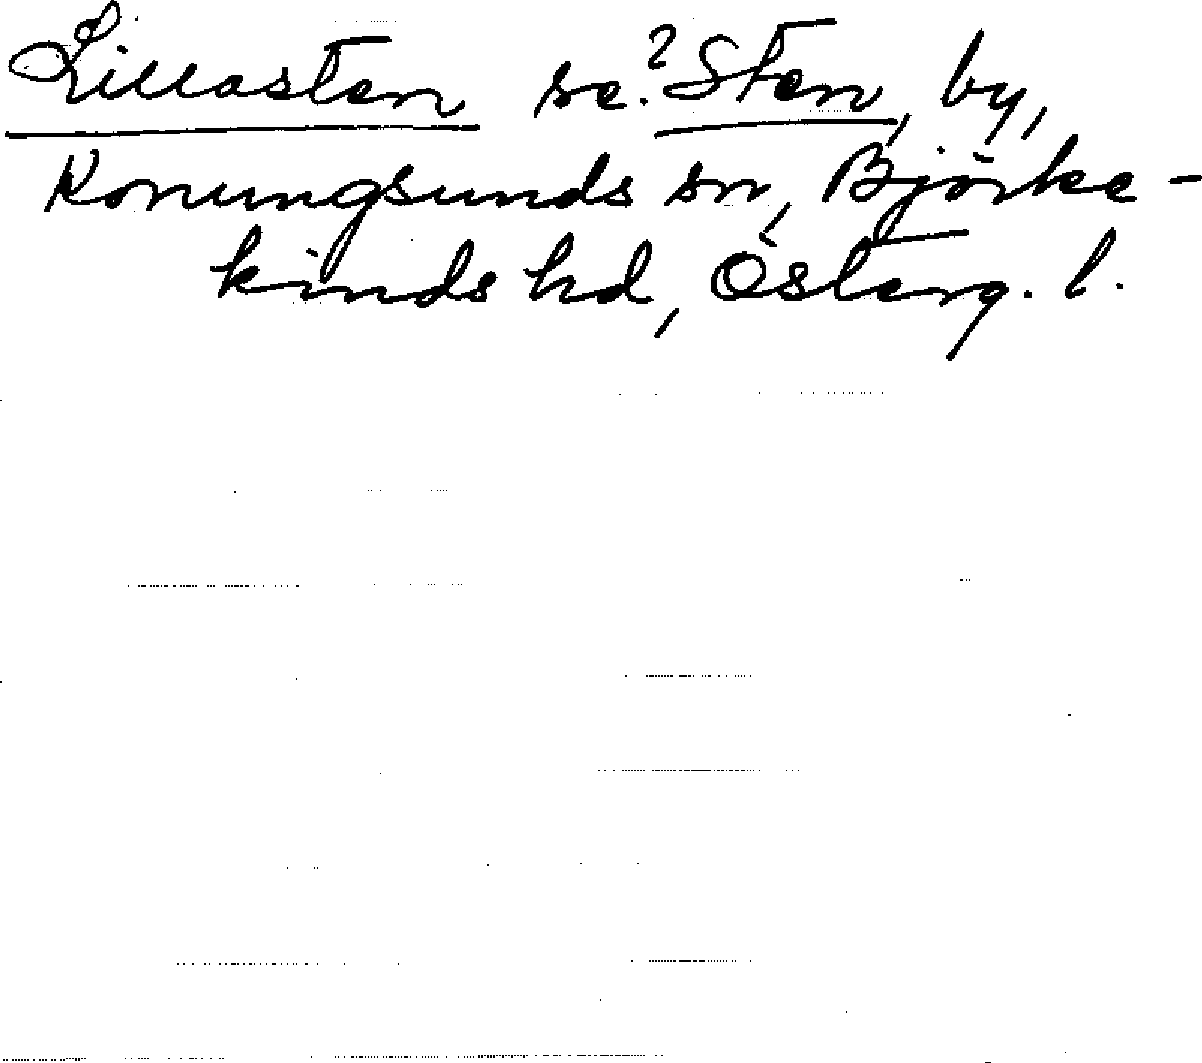 Lillasten se. ? Sten, by,
Konungsunds sn, Björke-
kinds hd, Österg. l.